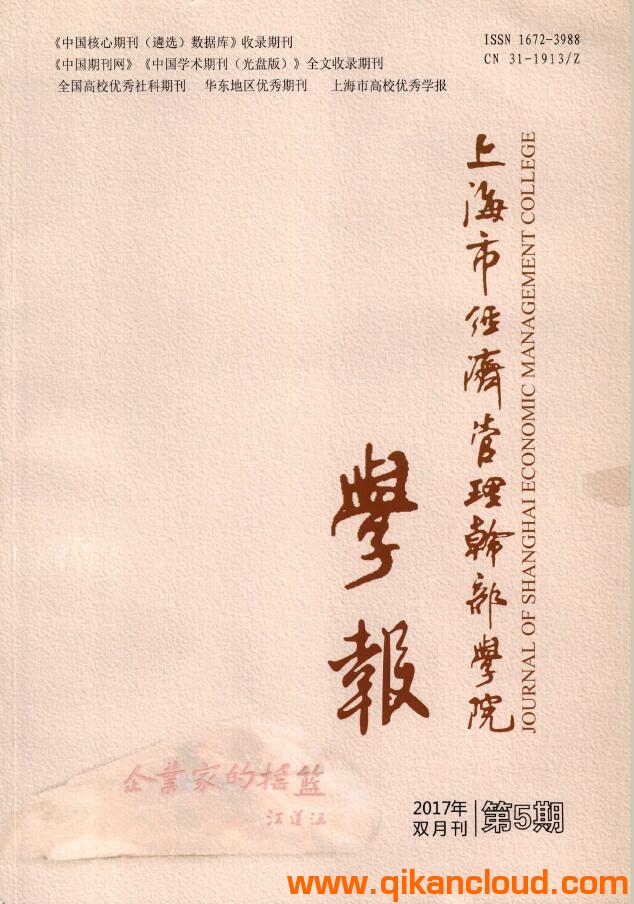 《中国核心期刊(遴选)数据库》收录期刊
《中国期刊网》《中国学术期刊(光盘版)》全文收录期刊
全国高校优秀社科期刊 华东地区优秀期刊 上海市高校优秀学报
ISSN 1672-3988
CN 31-1913/Z
上海市经濟管理幹部學院
JOURNAL OF SHANGHAI ECONOMIC MANAGEMENT COLLEGE
學報
企業家的摇籃
江道涵
2017年
双月刊
第5期
www.qikancloud.com